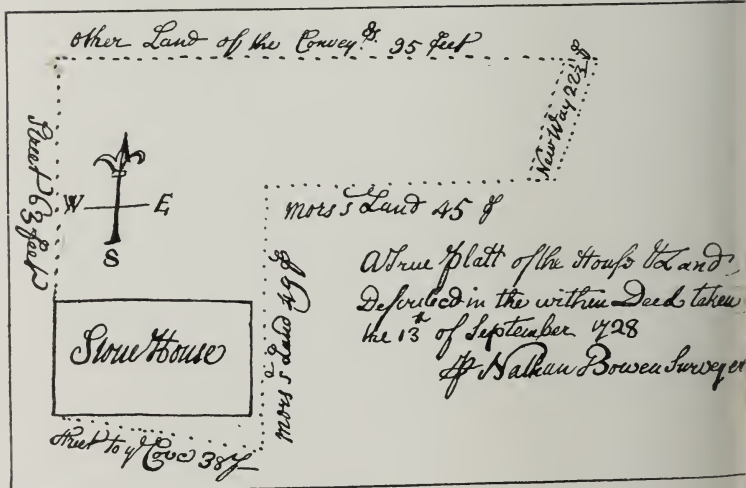 other Land of the Convey.rs 95 feet
Street 63 feet
New Way 22½ f
W E
S
mors's Land 45 f
mors's Land 46 f
Stone House
Street to ye Cove 38 f
A True Platt of the House & Land
Described in the within Deed taken
the 13th of September 1728
Nathan Bowen Surveyer